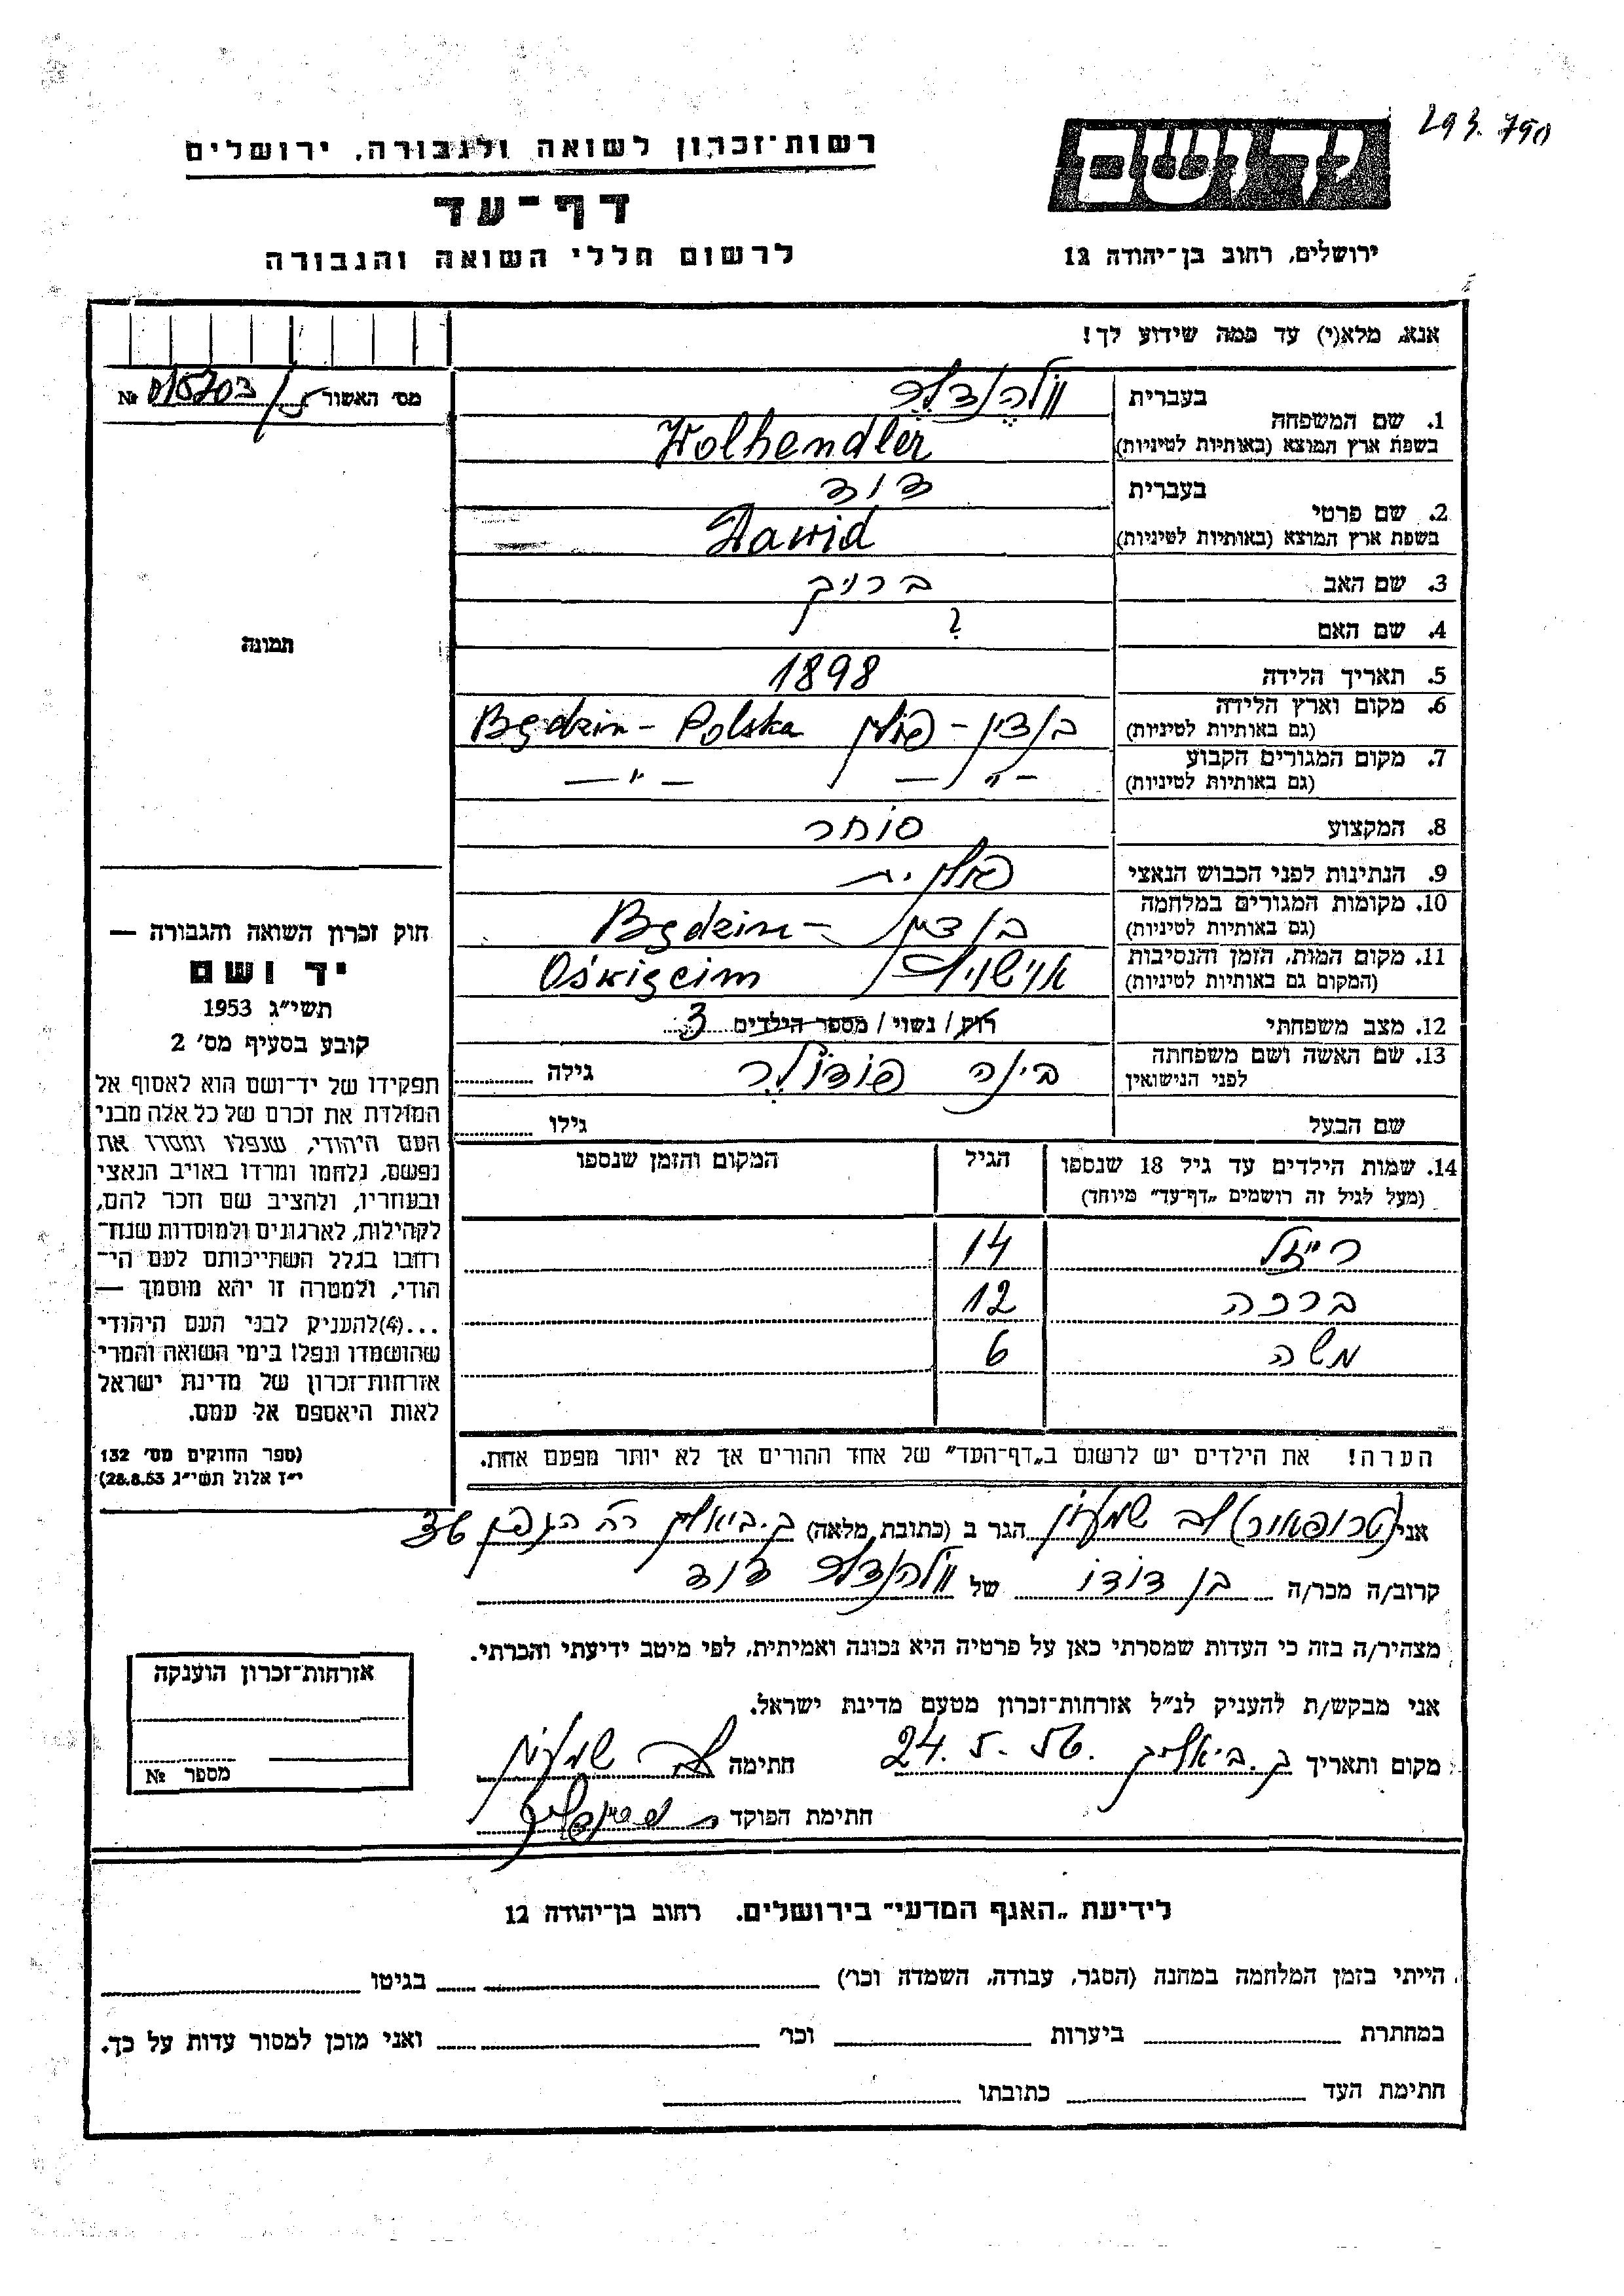 293.790
רשות־זכרון לשואה ולגבורה, ירושלים
יד ושם
דף־עד
לרשום חללי השואה והגבורה
ירושלים, רחוב בן־יהודה 12
אנא, מלא(י) עד כמה שידוע לך!
מס׳ האשור № 015703/5
1. שם המשפחה בעברית וולהנדלר
בשפת ארץ המוצא (באותיות לטיניות) Wolhendler
2. שם פרטי בעברית דוד
בשפת ארץ המוצא (באותיות לטיניות) Dawid
3. שם האב ברוך
4. שם האם ?
תמונה
5. תאריך הלידה 1898
6. מקום וארץ הלידה (גם באותיות לטיניות) בנדין - פולין Będzin - Polska
7. מקום המגורים הקבוע (גם באותיות לטיניות) - " - - " -
8. המקצוע סוחר
9. הנתינות לפני הכבוש הנאצי פולנית
10. מקומות המגורים במלחמה (גם באותיות לטיניות) בנדין - Będzin
11. מקום המות, הזמן והנסיבות (המקום גם באותיות לטיניות) אוישויץ Oświęcim
12. מצב משפחתי רוק / נשוי / מספר הילדים 3
13. שם האשה ושם משפחתה לפני הנישואין בינה פודולר גילה
שם הבעל גילו
חוק זכרון השואה והגבורה —
יד ושם
תשי״ג 1953
קובע בסעיף מס׳ 2
תפקידו של יד־ושם הוא לאסוף אל
המולדת את זכרם של כל אלה מבני
העם היהודי, שנפלו ומסרו את
נפשם, נלחמו ומרדו באויב הנאצי
ובעוזריו, ולהציב שם וזכר להם,
לקהילות, לארגונים ולמוסדות שנח־
רבו בגלל השתייכותם לעם הי־
הודי, ולמטרה זו יהא מוסמך —
...(4) להעניק לבני העם היהודי
שהושמדו ונפלו בימי השואה והמרי
אזרחות־זכרון של מדינת ישראל
לאות היאספם אל עמם.
(ספר החוקים מס׳ 132
י״ז אלול תשי״ג 28.8.53)
14. שמות הילדים עד גיל 18 שנספו הגיל המקום והזמן שנספו
(מעל לגיל זה רושמים „דף־עד״ מיוחד)
רייזל 14
ברכה 12
משה 6
הערה! את הילדים יש לרשום ב„דף־העד״ של אחד ההורים אך לא יותר מפעם אחת.
אני שמעון הגר ב (כתובת מלאה) ק. ביאליק רח׳ הגפן
קרוב/ה מכר/ה בן דודו של וולהנדלר דוד
מצהיר/ה בזה כי העדות שמסרתי כאן על פרטיה היא נכונה ואמיתית, לפי מיטב ידיעתי והכרתי.
אני מבקש/ת להעניק לנ״ל אזרחות־זכרון מטעם מדינת ישראל.
מקום ותאריך ק. ביאליק 24.5.56 חתימה שמעון
חתימת הפוקד
אזרחות־זכרון הוענקה
מספר №
לידיעת „האגף המדעי״ בירושלים, רחוב בן־יהודה 12
הייתי בזמן המלחמה במחנה (הסגר, עבודה, השמדה וכו׳) בגיטו
במחתרת ביערות וכו׳ ואני מוכן למסור עדות על כך.
חתימת העד כתובתו